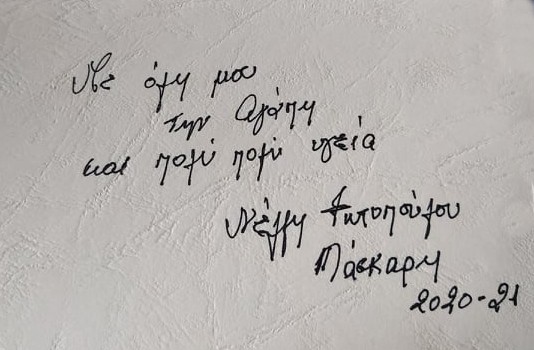 Με όλη μου
την Αγάπη
και πολύ πολύ υγεία
Νέλλη Φωτοπούλου
Μάσκαρη
2020-21